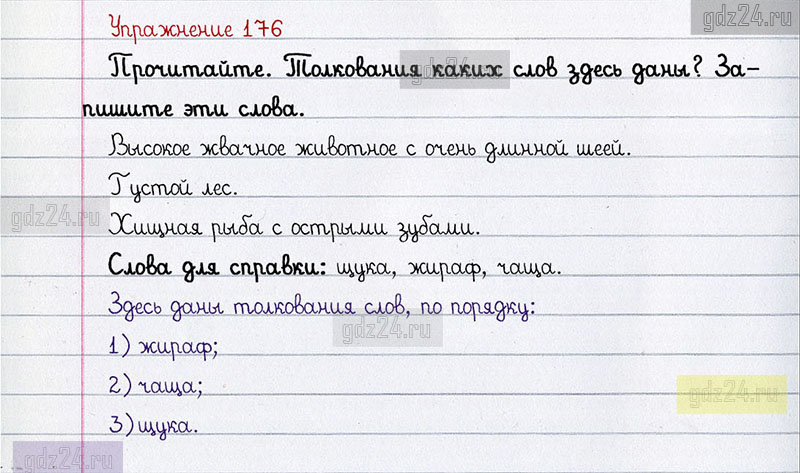 gdz24.ru
Упражнение 176
Прочитайте. Толкования каких слов здесь даны? За-
gdz24.ru
пишите эти слова.
Высокое жвачное животное с очень длинной шеей.
Густой лес.
gdz24.ru
Хищная рыба с острыми зубами.
Слова для справки: щука, жираф, чаща.
Здесь даны толкования слов, по порядку:
gdz24.ru
1) жираф;
2) чаща;
gdz24.ru
3) щука.
gdz24.ru